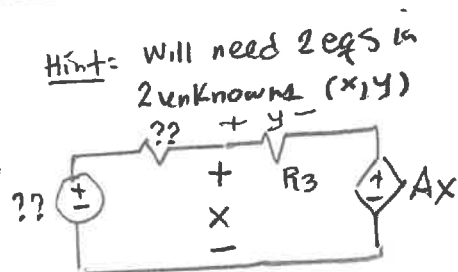 Hint: Will need 2 eqs in
2 unknowns (x,y)
?? + y -
?? + + R3 + Ax
- x -
-